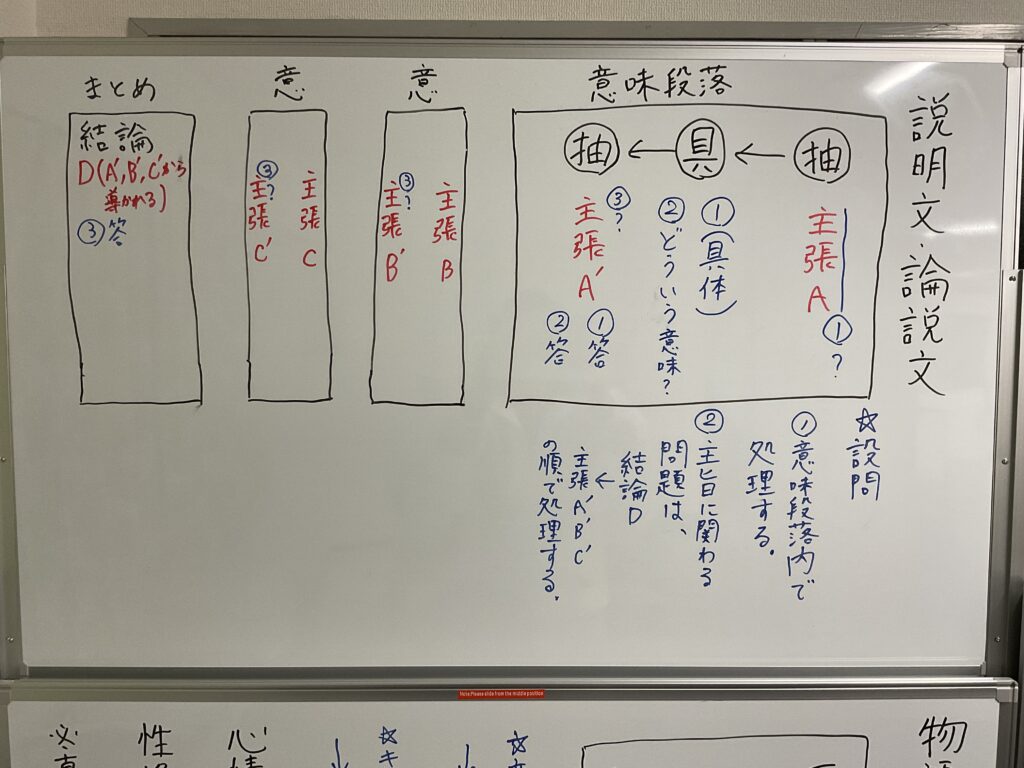 説明文・論説文
意味段落
抽 ← 具 ← 抽
主張A
①?
①(具体)
②どういう意味?
③?
主張A′
①答
②答
意
主張B
③?
主張B′
意
主張C
③?
主張C′
まとめ
結論
D(A′,B′,C′から
導かれる)
③答
☆設問
①意味段落内で
処理する。
②主旨に関わる
問題は、
結論D
↓
主張A′B′C′
の順で処理する。
Note:Please slide from the middle position
物
☆
↓
☆キ
↓
心情
性
必